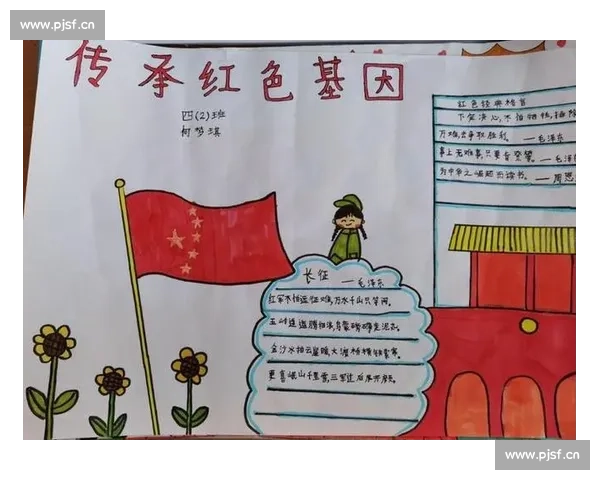 www.pjsf.cn
传承红色基因
四(2)班
何梦琪
红色经典格言
下定决心,不怕牺牲,排除
万难,去争取胜利。 —毛泽东
事上无难事,只要肯登攀。 —毛泽
为中华之崛起而读书。 —周恩
长征
—毛泽东
红军不怕远征难,万水千山只等闲。
五岭逶迤腾细浪,乌蒙磅礴走泥丸。
金沙水拍云崖暖,大渡桥横铁索寒。
更喜岷山千里雪,三军过后尽开颜。
www.pjsf.cn